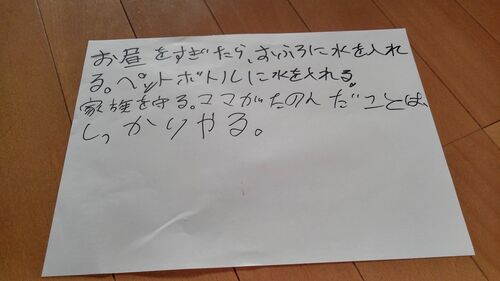 お昼をすぎたら、おふろに水を入れ
る。ペットボトルに水を入れる
家族を守る。ママがたのんだことは、
しっかりやる。